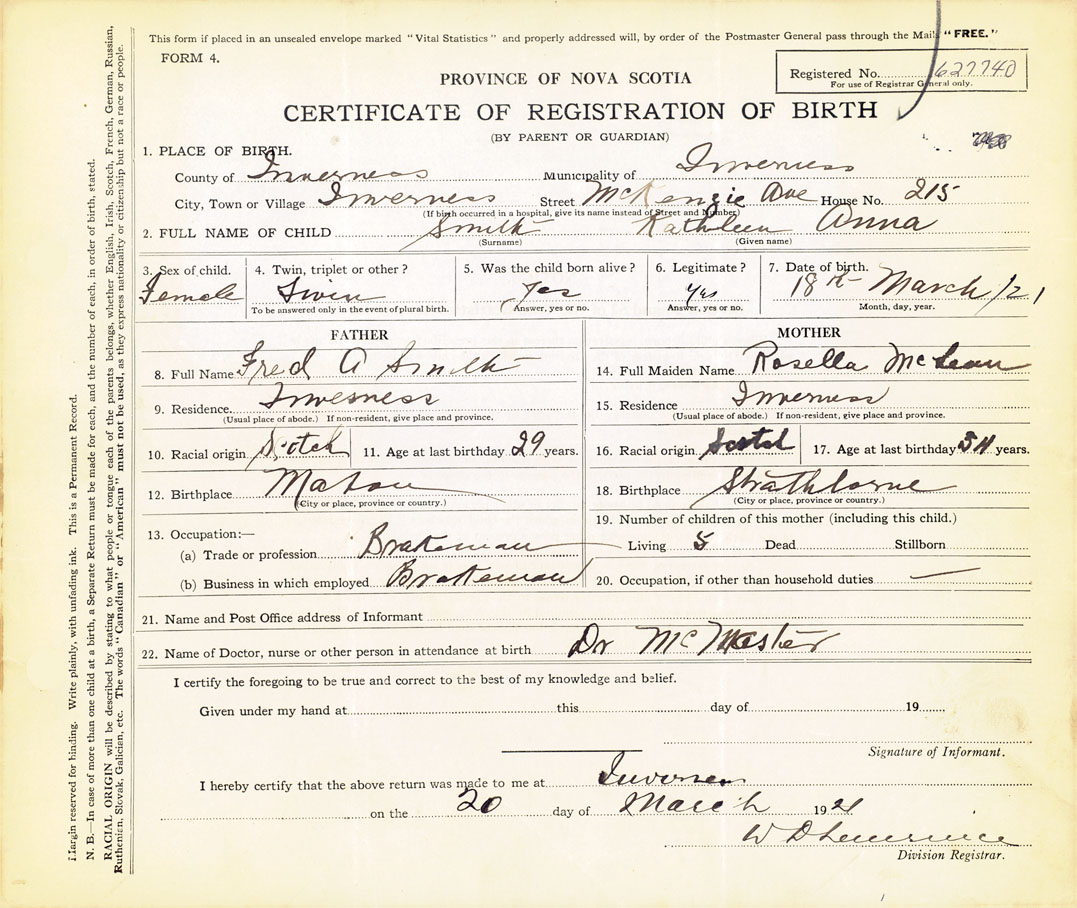 This form if placed in an unsealed envelope marked "Vital Statistics" and properly addressed will, by order of the Postmaster General pass through the Mail "FREE."
FORM 4.
Registered No. 627740
For use of Registrar General only.
PROVINCE OF NOVA SCOTIA
CERTIFICATE OF REGISTRATION OF BIRTH
(BY PARENT OR GUARDIAN)
1. PLACE OF BIRTH.
County of Inverness Municipality of Inverness
City, Town or Village Inverness Street McKenzie Ave House No. 215
(If birth occurred in a hospital, give its name instead of Street and Number)
2. FULL NAME OF CHILD Smith Kathleen Anna
(Surname) (Given name)
3. Sex of child. 4. Twin, triplet or other? 5. Was the child born alive? 6. Legitimate? 7. Date of birth.
Female Twin Yes Yes 18th March /21
To be answered only in the event of plural birth. Answer, yes or no. Answer, yes or no. Month, day, year.
FATHER
8. Full Name Fred A Smith
9. Residence Inverness
(Usual place of abode.) If non-resident, give place and province.
10. Racial origin Scotch 11. Age at last birthday 29 years.
12. Birthplace Mabou
(City or place, province or country.)
13. Occupation:—
(a) Trade or profession Brakeman
(b) Business in which employed Brakeman
MOTHER
14. Full Maiden Name Rosella McLean
15. Residence Inverness
(Usual place of abode.) If non-resident, give place and province.
16. Racial origin Scotch 17. Age at last birthday years.
18. Birthplace Strathlorne
(City or place, province or country.)
19. Number of children of this mother (including this child.)
Living 5 Dead Stillborn
20. Occupation, if other than household duties —
21. Name and Post Office address of Informant
22. Name of Doctor, nurse or other person in attendance at birth Dr McMaster
I certify the foregoing to be true and correct to the best of my knowledge and belief.
Given under my hand at this day of 19
Signature of Informant.
I hereby certify that the above return was made to me at Inverness
on the 20 day of March 1921
W D Lawrence
Division Registrar.
Margin reserved for binding. Write plainly, with unfading ink. This is a Permanent Record.
N. B.—In case of more than one child at a birth, a Separate Return must be made for each, and the number of each, in order of birth, stated.
RACIAL ORIGIN will be described by stating to what people or tongue each of the parents belongs, whether English, Irish, Scotch, French, German, Russian,
Ruthenian, Slovak, Galician, etc. The words "Canadian" or "American" must not be used, as they express nationality or citizenship but not a race or people.